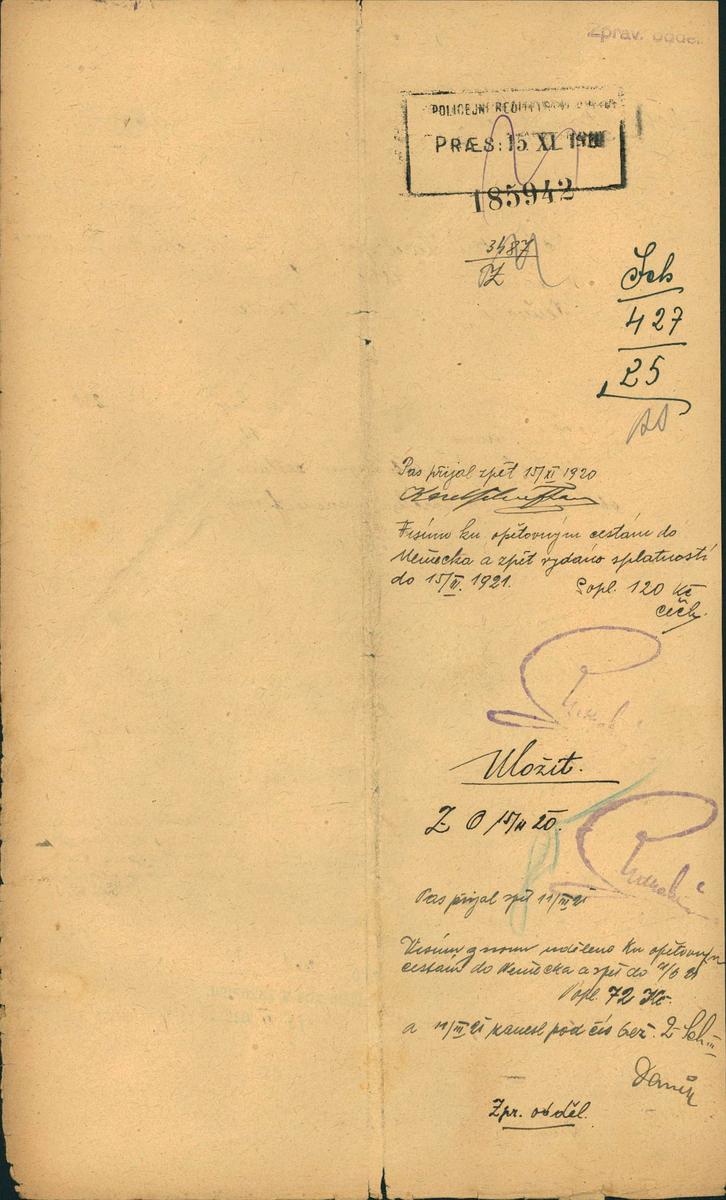 Zprav. odděl.
POLICEJNÍ ŘEDITELSTVÍ
PRÆS: 15 XI 1920
185942
3487
Sch
427
25
Pas přijal zpět 15/XI 1920
Visum ku opětovným cestám do
Německa a zpět vydáno splatností
do 15/III. 1921. Popl. 120 Kč
Čech
Uložit.
Z O 15/XI 20.
Pas přijal zpět 11/III 21
Visum znovu uděleno ku opětovným
cestám do Německa a zpět do
Popl. 72 Kč.
a 11/III 21 pod čís bež. 2 Sch
Daněk
Zpr. odděl.